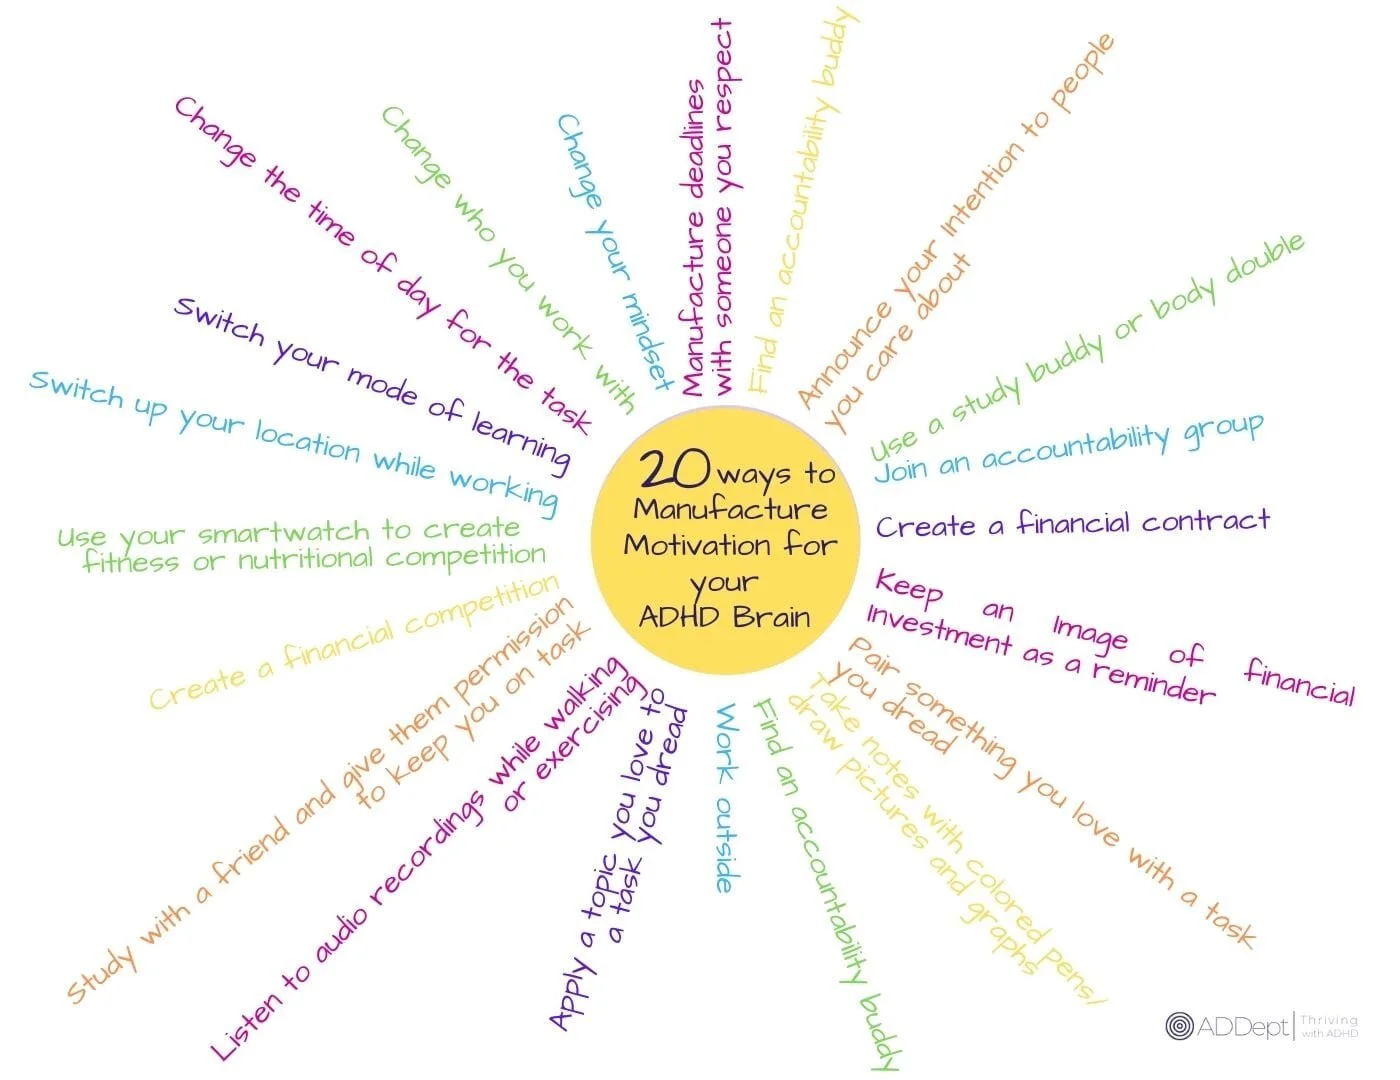 20 ways to
Manufacture
Motivation for
your
ADHD Brain
Manufacture deadlines
with someone you respect
Find an accountability buddy
Announce your Intention to people
you care about
Use a study buddy or body double
Join an accountability group
Create a financial contract
Keep an Image of financial
Investment as a reminder
Pair something you love with a task
you dread
Take notes with colored pens/
draw pictures and graphs
Find an accountability buddy
Work outside
Apply a topic you love to
a task you dread
Listen to audio recordings while walking
or exercising
Study with a friend and give them permission
to keep you on task
Create a financial competition
Use your smartwatch to create
fitness or nutritional competition
Switch up your location while working
Switch your mode of learning
Change the time of day for the task
Change who you work with
Change your mindset
ADDept
Thriving
with ADHD